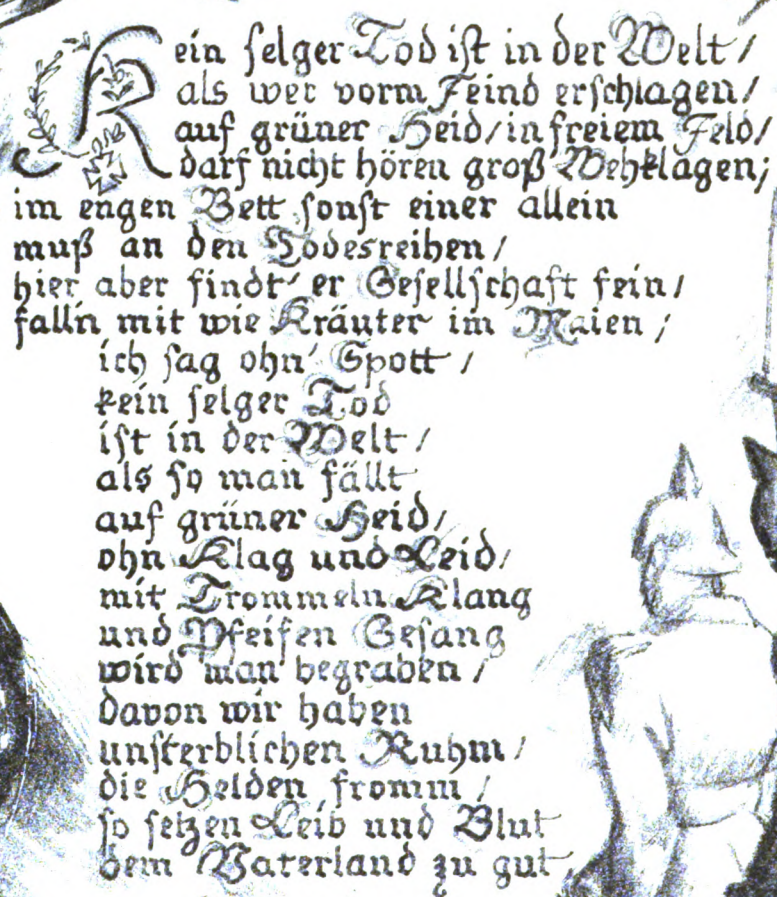 Kein selger Tod ist in der Welt /
als wer vorm Feind erschlagen /
auf grüner Heid / in freiem Feld /
darf nicht hören groß Wehklagen ;
im engen Bett sonst einer allein
muß an den Todesreihen /
hier aber findt' er Gesellschaft fein /
fall'n mit wie Kräuter im Maien ;
ich sag ohn' Spott /
kein selger Tod
ist in der Welt /
als so man fällt
auf grüner Heid /
ohn Klag und Leid /
mit Trommeln Klang
und Pfeifen Gesang
wird man begraben /
davon wir haben
unsterblichen Ruhm /
die Helden fromm /
so setzen Leib und Blut
dem Vaterland zu gut.